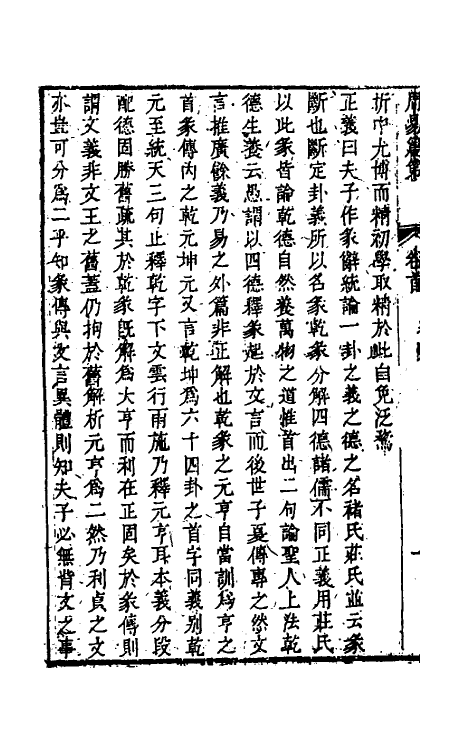 折中尤博而精初學取精於此自免泛騖
正義曰夫子作彖辭統論一卦之義之德之名褚氏莊氏並云彖
斷也斷定卦義所以名彖乾彖分解四德諸儒不同正義用莊氏
以此彖皆論乾德自然養萬物之道惟首出二句論聖人上法乾
德生養云愚謂以四德釋彖起於文言而後世子夏傳專之然文
言推廣餘義乃易之外篇非正解也乾彖之元亨自當訓爲亨之
首彖傳內之乾元坤元又言乾坤爲六十四卦之首字同義別乾
元至統天三句止釋乾字下文雲行雨施乃釋元亨耳本義分段
配德固勝舊疏其於乾彖旣解爲大亨而利在正固矣於彖傳則
謂文義非文王之舊蓋仍拘於舊解析元亨爲二然乃利貞之文
亦豈可分爲二乎知彖傳與文言異體則知夫子必無背文之事